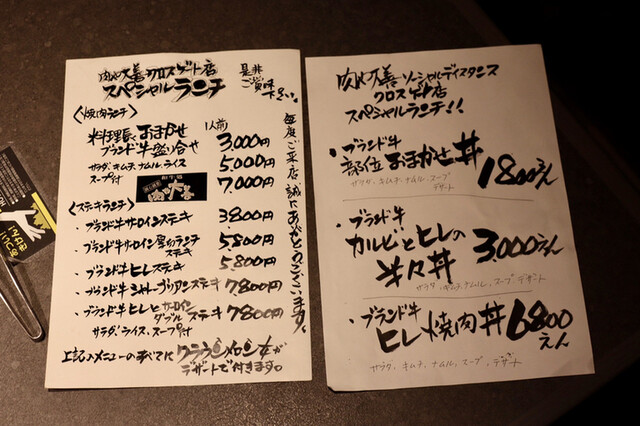 肉の大善クロスゲート店
スペシャルランチ
是非
ご賞味
下さい。
毎度ご来店誠にありがとうございます。
〈焼肉ランチ〉
料理長おまかせ
ブランド牛盛り合せ
サラダ、キムチ、ナムル、ライス
スープ付
1人前
3,000円
5,000円
7,000円
〈ステーキランチ〉
・ブランド牛サーロインステーキ 3,800円
・ブランド牛サーロイン厚切ランチ
ステーキ 5,800円
・ブランド牛ヒレステーキ 5,800円
・ブランド牛シャトーブリアンステーキ 7,800円
・ブランド牛ヒレとサーロイン
ダブルステーキ 7,800円
サラダ、ライス、スープ付
上記メニューのすべてに
デザートで付きます。
肉の大善ソーシャルディスタンス
クロスゲート店
スペシャルランチ!!
・ブランド牛
部位おまかせ丼 1800えん
サラダ、キムチ、ナムル、スープ
デザート
・ブランド牛
カルビとヒレの
半々丼 3,000えん
サラダ、キムチ、ナムル、スープ、デザート
・ブランド牛
ヒレ焼肉丼 6800
えん
サラダ、キムチ、ナムル、スープ、デザート